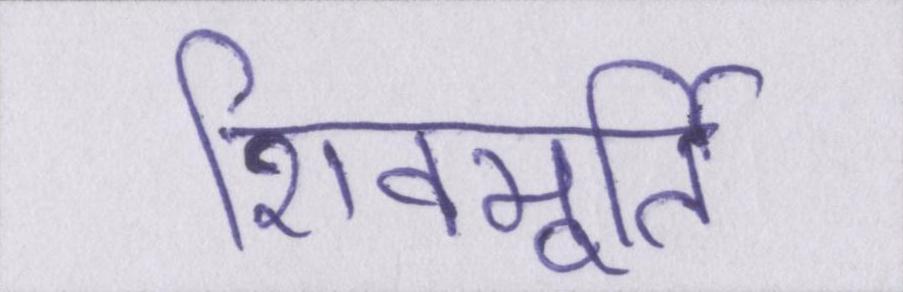 शिवमूर्ति